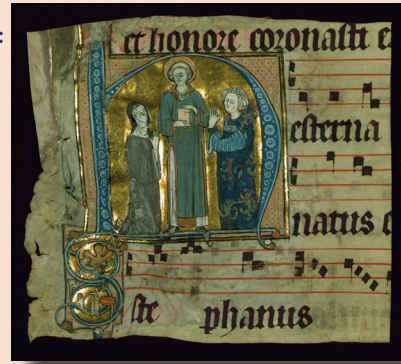 et honore coronasti e
esterna
natus e
ste phanus